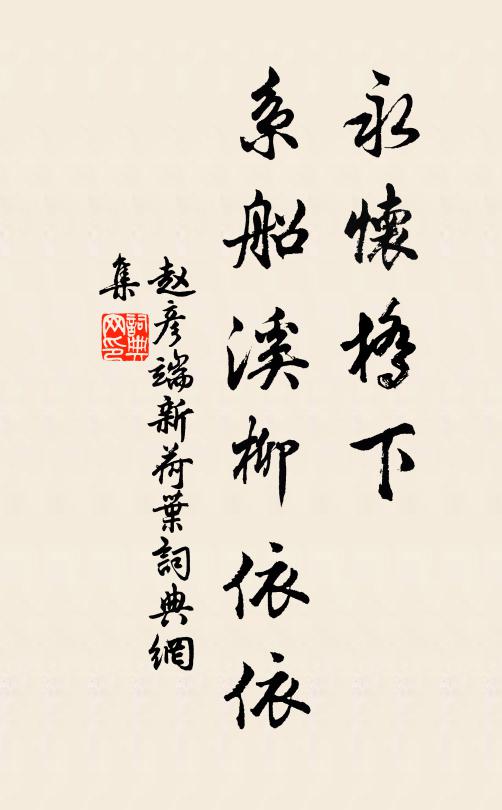 永懷橋下
系船溪柳依依
赵彦端新荷葉詞典網
集
詞典
网印